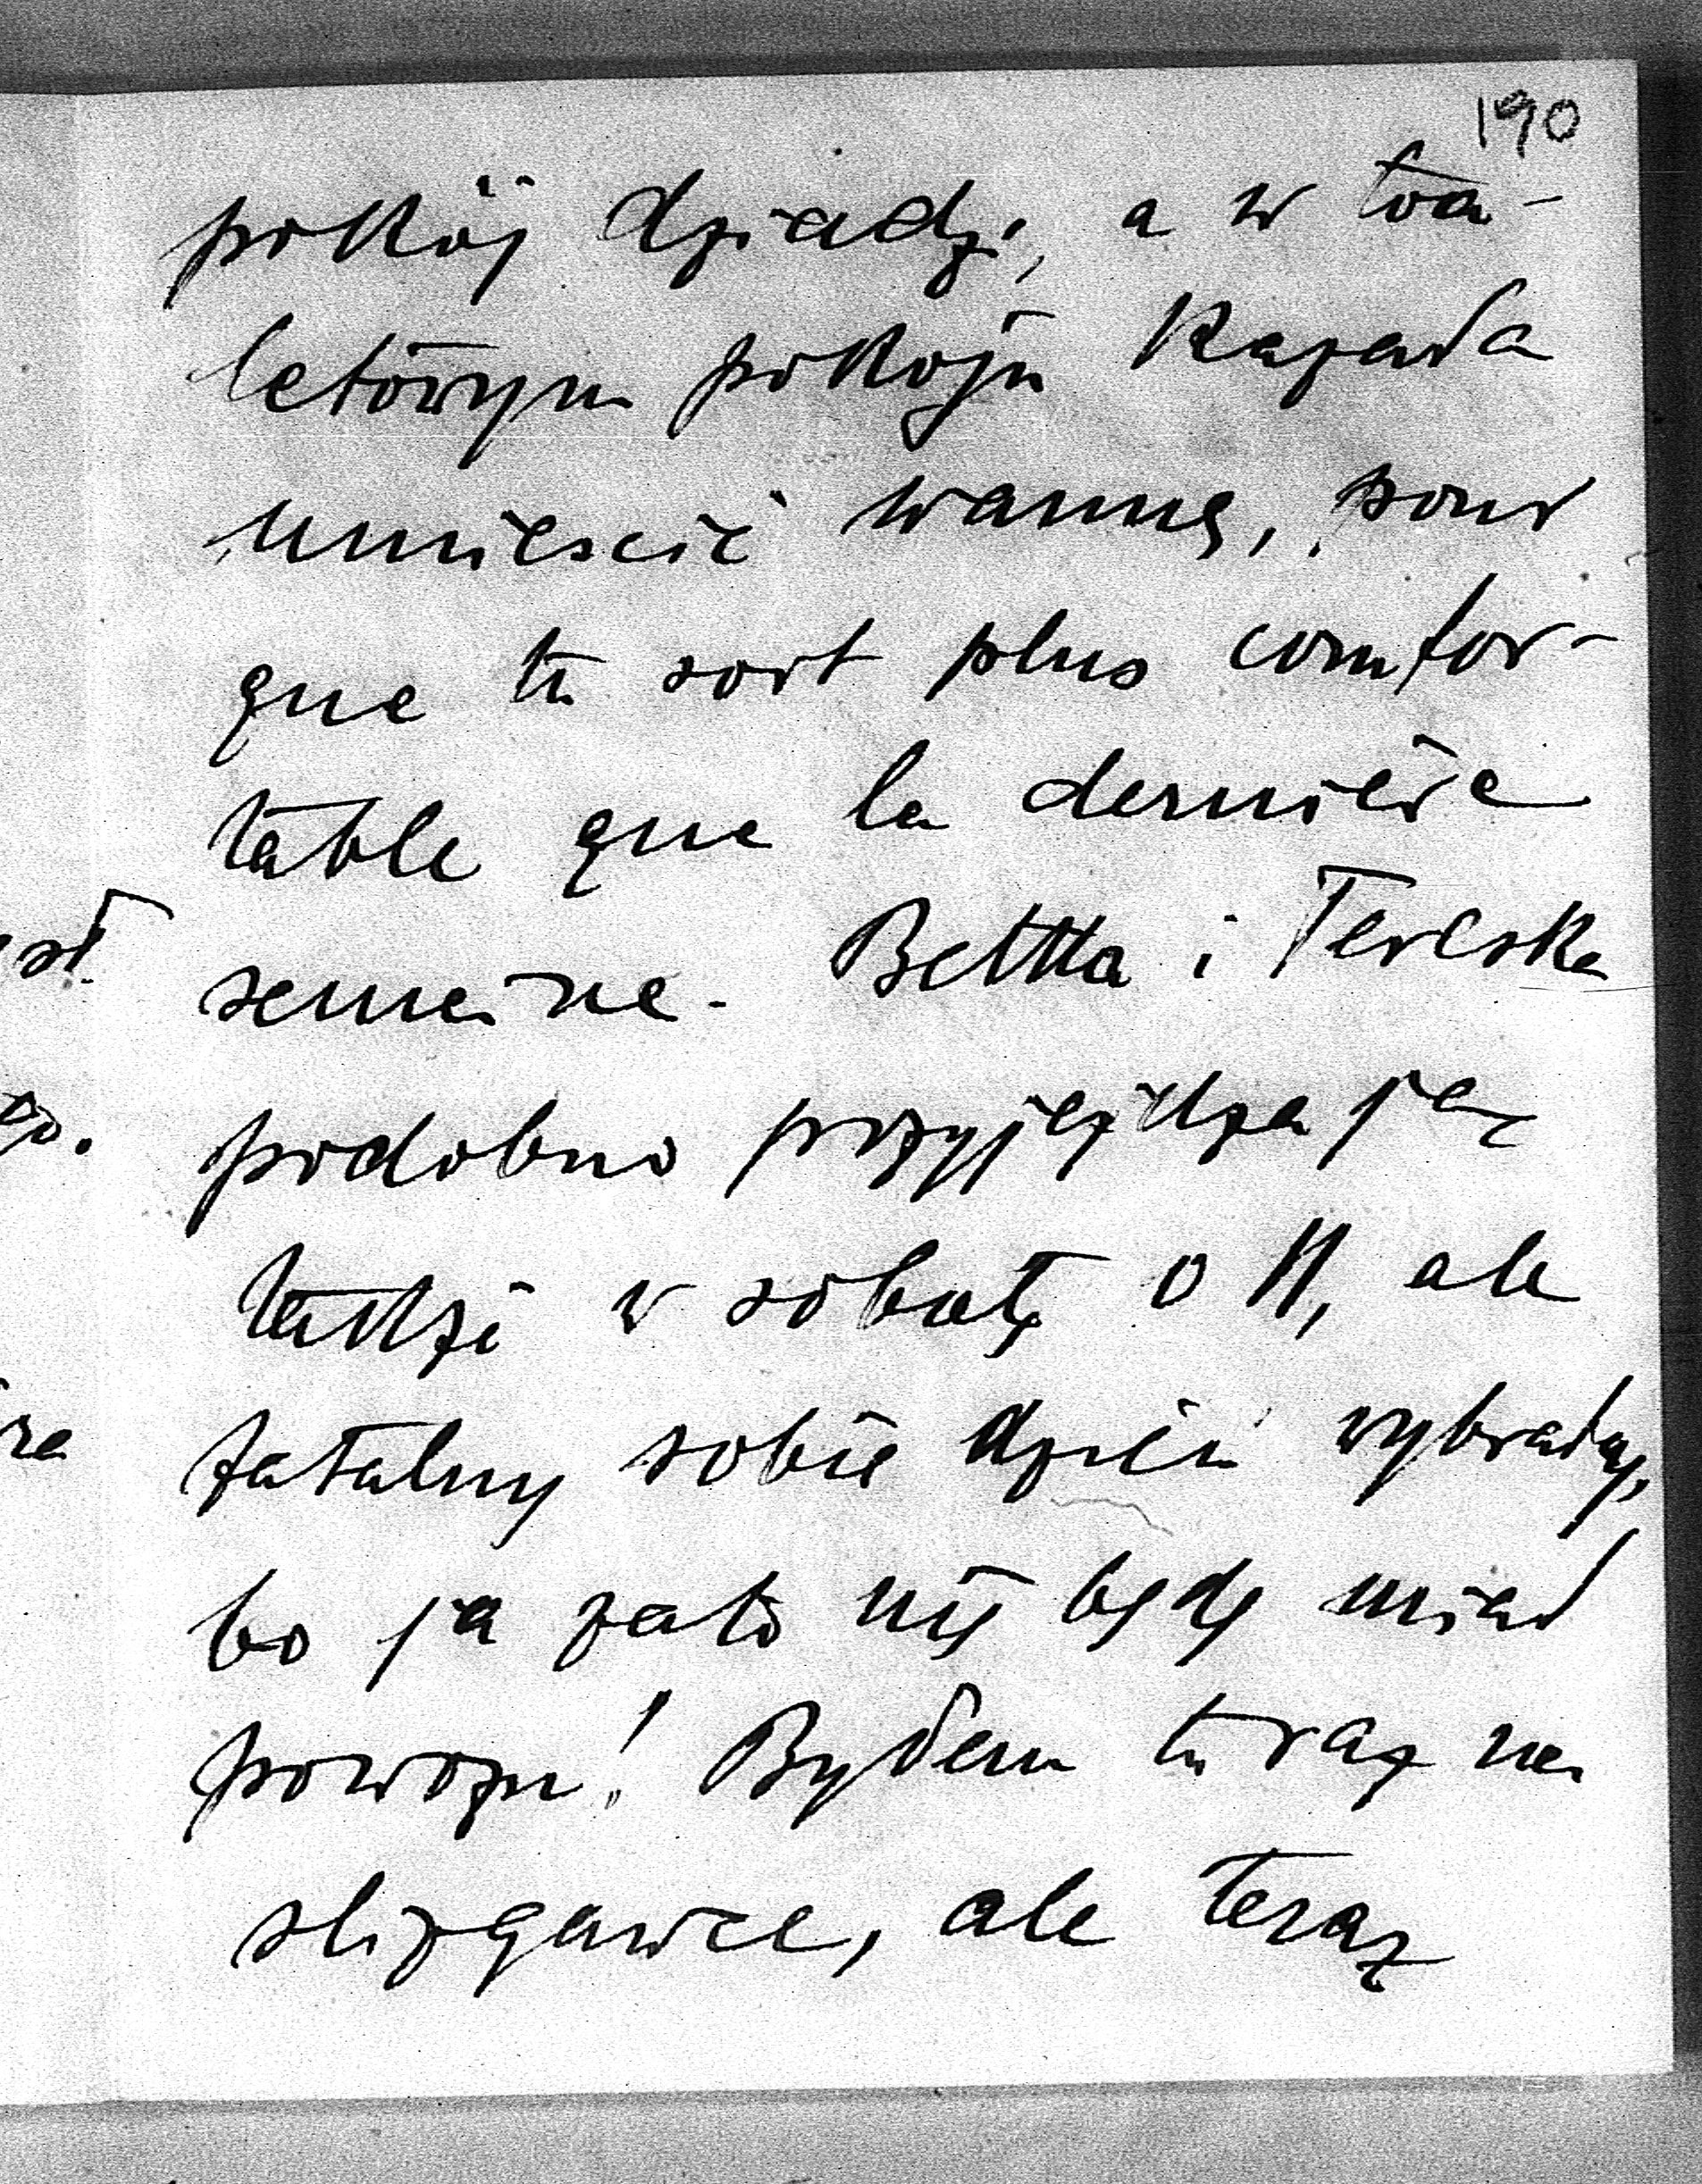 190
pokój dziadzi, a w toa-
letowym pokoju kazała
umieścić wannę, pour
que tu soit plus comfor-
table que la dernière
semaine. Bettka i Tereska
podobno przyjeżdżają
także w sobotę o 11, ale
fatalny sobie dzień wybrały,
bo ja zato nie będę miał
powozu! Byłem tu raz na
slizgawce, ale teraz